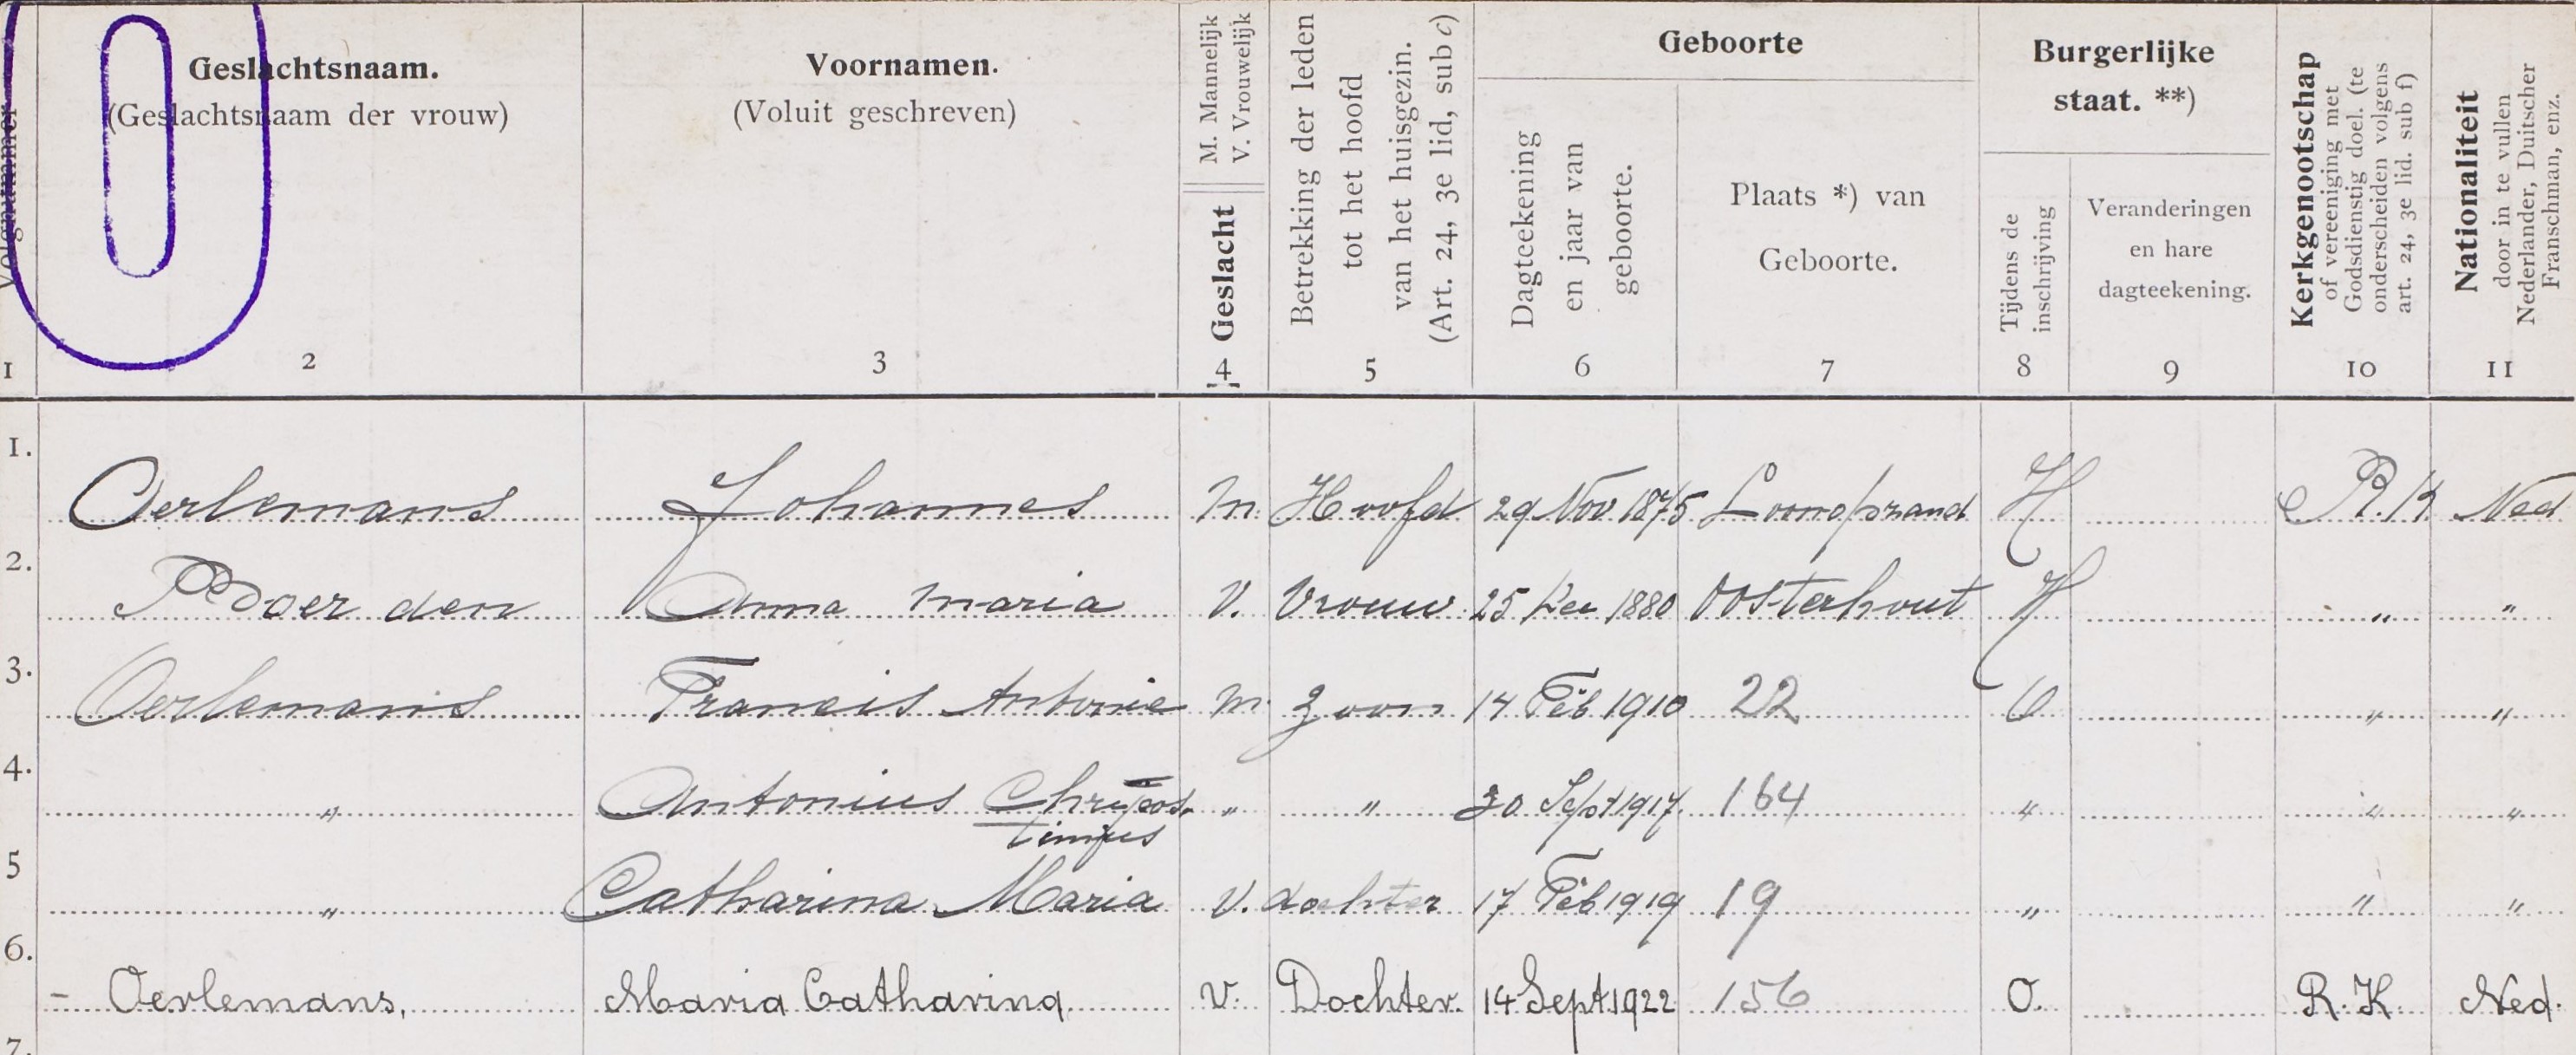 Volgnummer
1
Geslachtsnaam.
(Geslachtsnaam der vrouw)
2
Voornamen.
(Voluit geschreven)
3
M. Mannelijk
V. Vrouwelijk
Geslacht
4
Betrekking der leden
tot het hoofd
van het huisgezin.
(Art. 24, 3e lid, sub c)
5
Geboorte
Dagteekening
en jaar van
geboorte.
6
Plaats *) van
Geboorte.
7
Burgerlijke
staat. **)
Tijdens de
inschrijving
8
Veranderingen
en hare
dagteekening.
9
Kerkgenootschap
of vereeniging met
Godsdienstig doel. (te
onderscheiden volgens
art. 24, 3e lid. sub f)
10
Nationaliteit
door in te vullen
Nederlander, Duitscher
Franschman, enz.
11
1. Oerlemans Johannes M Hoofd 29 Nov 1875 H R.K Ned
2. Boer den Anna Maria V. Vrouw 25 1880 Oosterhout H " "
3. Oerlemans Francis Antonie M Zoon 14 Feb 1910 22 O " "
4. " Antonius " " 30 Sept 1917. 164 " " "
5 " Catharina Maria V. dochter 17 Feb 1919 19 " " "
6. = Oerlemans, Maria Catharina V. Dochter. 14 Sept. 1922 156 O. R.K. Ned.
7.